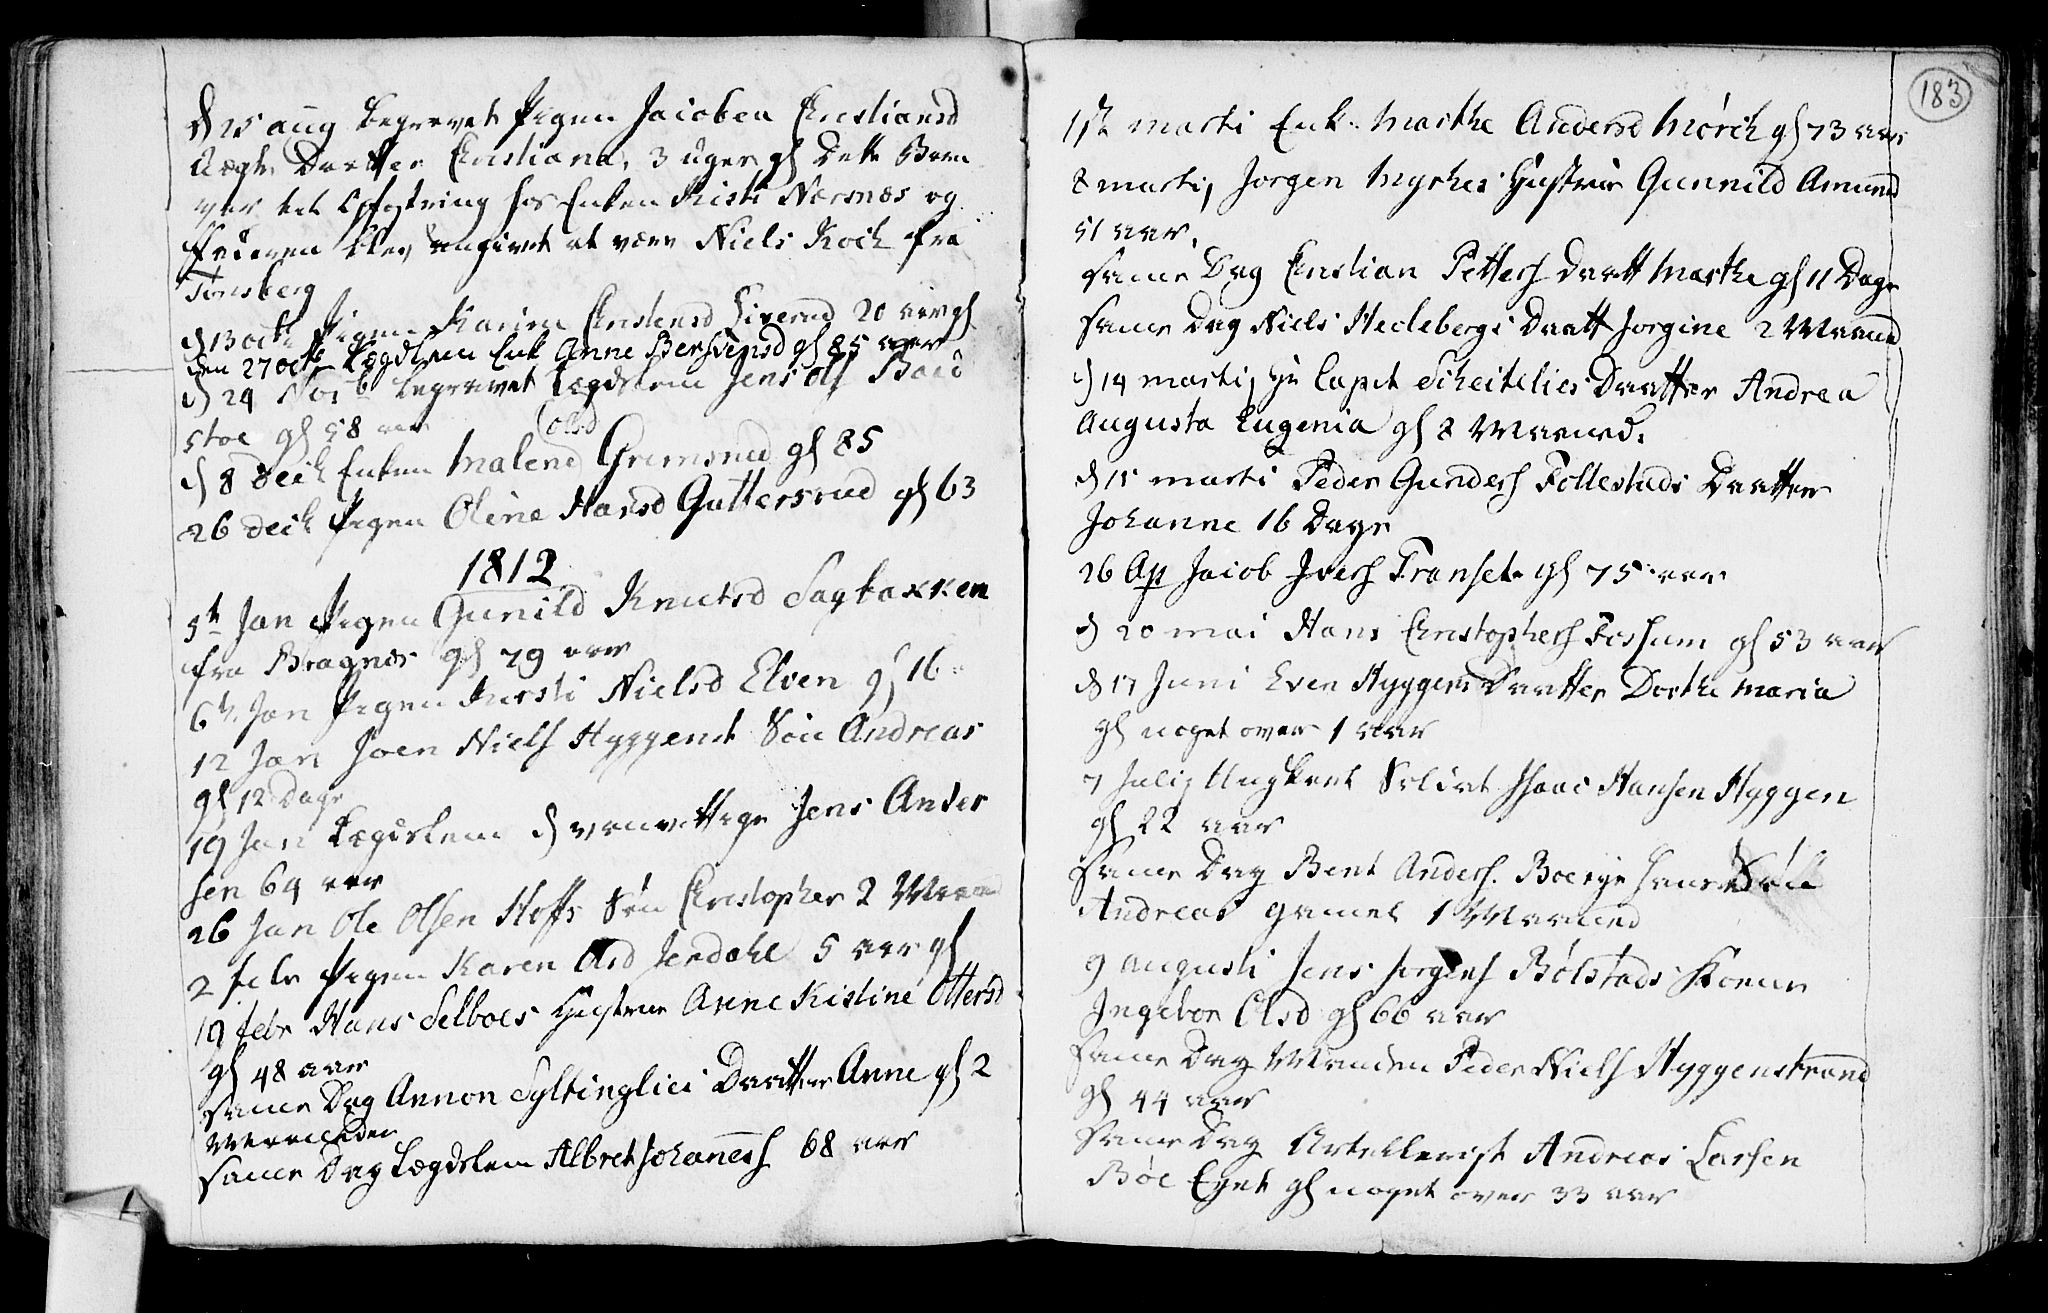 d 25 aug begravet Pigen Jacobea Christiansd
Uægte Daatter Christiana, 3 uger gl Dette Barn
var til Opfostring hos Enken Kisti Nærsnæs og
Faderen blev angivet at være Niels Koch fra
Tønsberg
d 13 octb Pigen Karen Christensd Siverud 20 aar gl
den 27 octb Lægdslem Enk Anne Bersvensd gl 85 aar
d 24 Novb begravet Lægdslem Jens Ols Baad
støe gl 58 aar
d 8 Decb Enken Malene Olsd Grimsrud gl 85
26 Decb Pigen Oline Hansd Guttersrud gl 63
1812
5t Jan Pigen Gunild Knutsd Sagbakken
fra Bragnæs gl 79 aar
6t Jan Pigen Kirsti Nielsd Elven gl 16
12 Jan Joen Niels Hyggenst Søn Andreas
gl 12 Dage
19 Jan Lægdslem d vanvittige Jens Ander
sen 64 aar
26 Jan Ole Olsen Hoffs Søn Christopher 2 Maaned
2 febr Pigen Karen Olsd Jerdahl 5 aar gl
19 febr Hans Selboes Hustrue Anne Kistine Ottersd
gl 48 aar
samme Dag Annon Syltinglies Daatter Anne gl 2
Maaneder
samme Dag Lægdslem Albret Johaness 68 aar
183
1ste marti Enk. Marthe Andersd Mørch gl 73 aar
8 marti, Jorgen Myrhes Hustrue Gunnild Amund
51 aar.
samme Dag Christian Petters Daatt Marthe gl 11 Dage
samme Dag Niels Heclebergs Daatt Jorgine 2 Maaned
d 14 marti, Hr Capit Scheitelies Daatter Andrea
Augusta Eugenia gl 8 Maaned.
d 15 marti Peder Gunders Follestads Daatter
Johanne 16 Dage
26 Ap Jacob Ivers Transet gl 75 aar
d 20 mai Hans Christophers Fossum gl 53 aar
d 17 Juni Even Hyggens Daatter Dorthe Maria
gl noget over 1 aar
7 Julij Ungkarl Soldat Isaac Hansen Hyggen
gl 22 aar
samme Dag Bent Anders. Boerge hans Søn
Andreas gamel 1 Maaned
9 augusti Jens Jorgens Bølstads Konne
Ingebor Olsd gl 66 aar
samme Dag Manden Peder Niels Hyggenstrand
gl 44 aar
samme Dag Artellerist Andreas Larsen
Bøe Eget gl noget over 33 aar